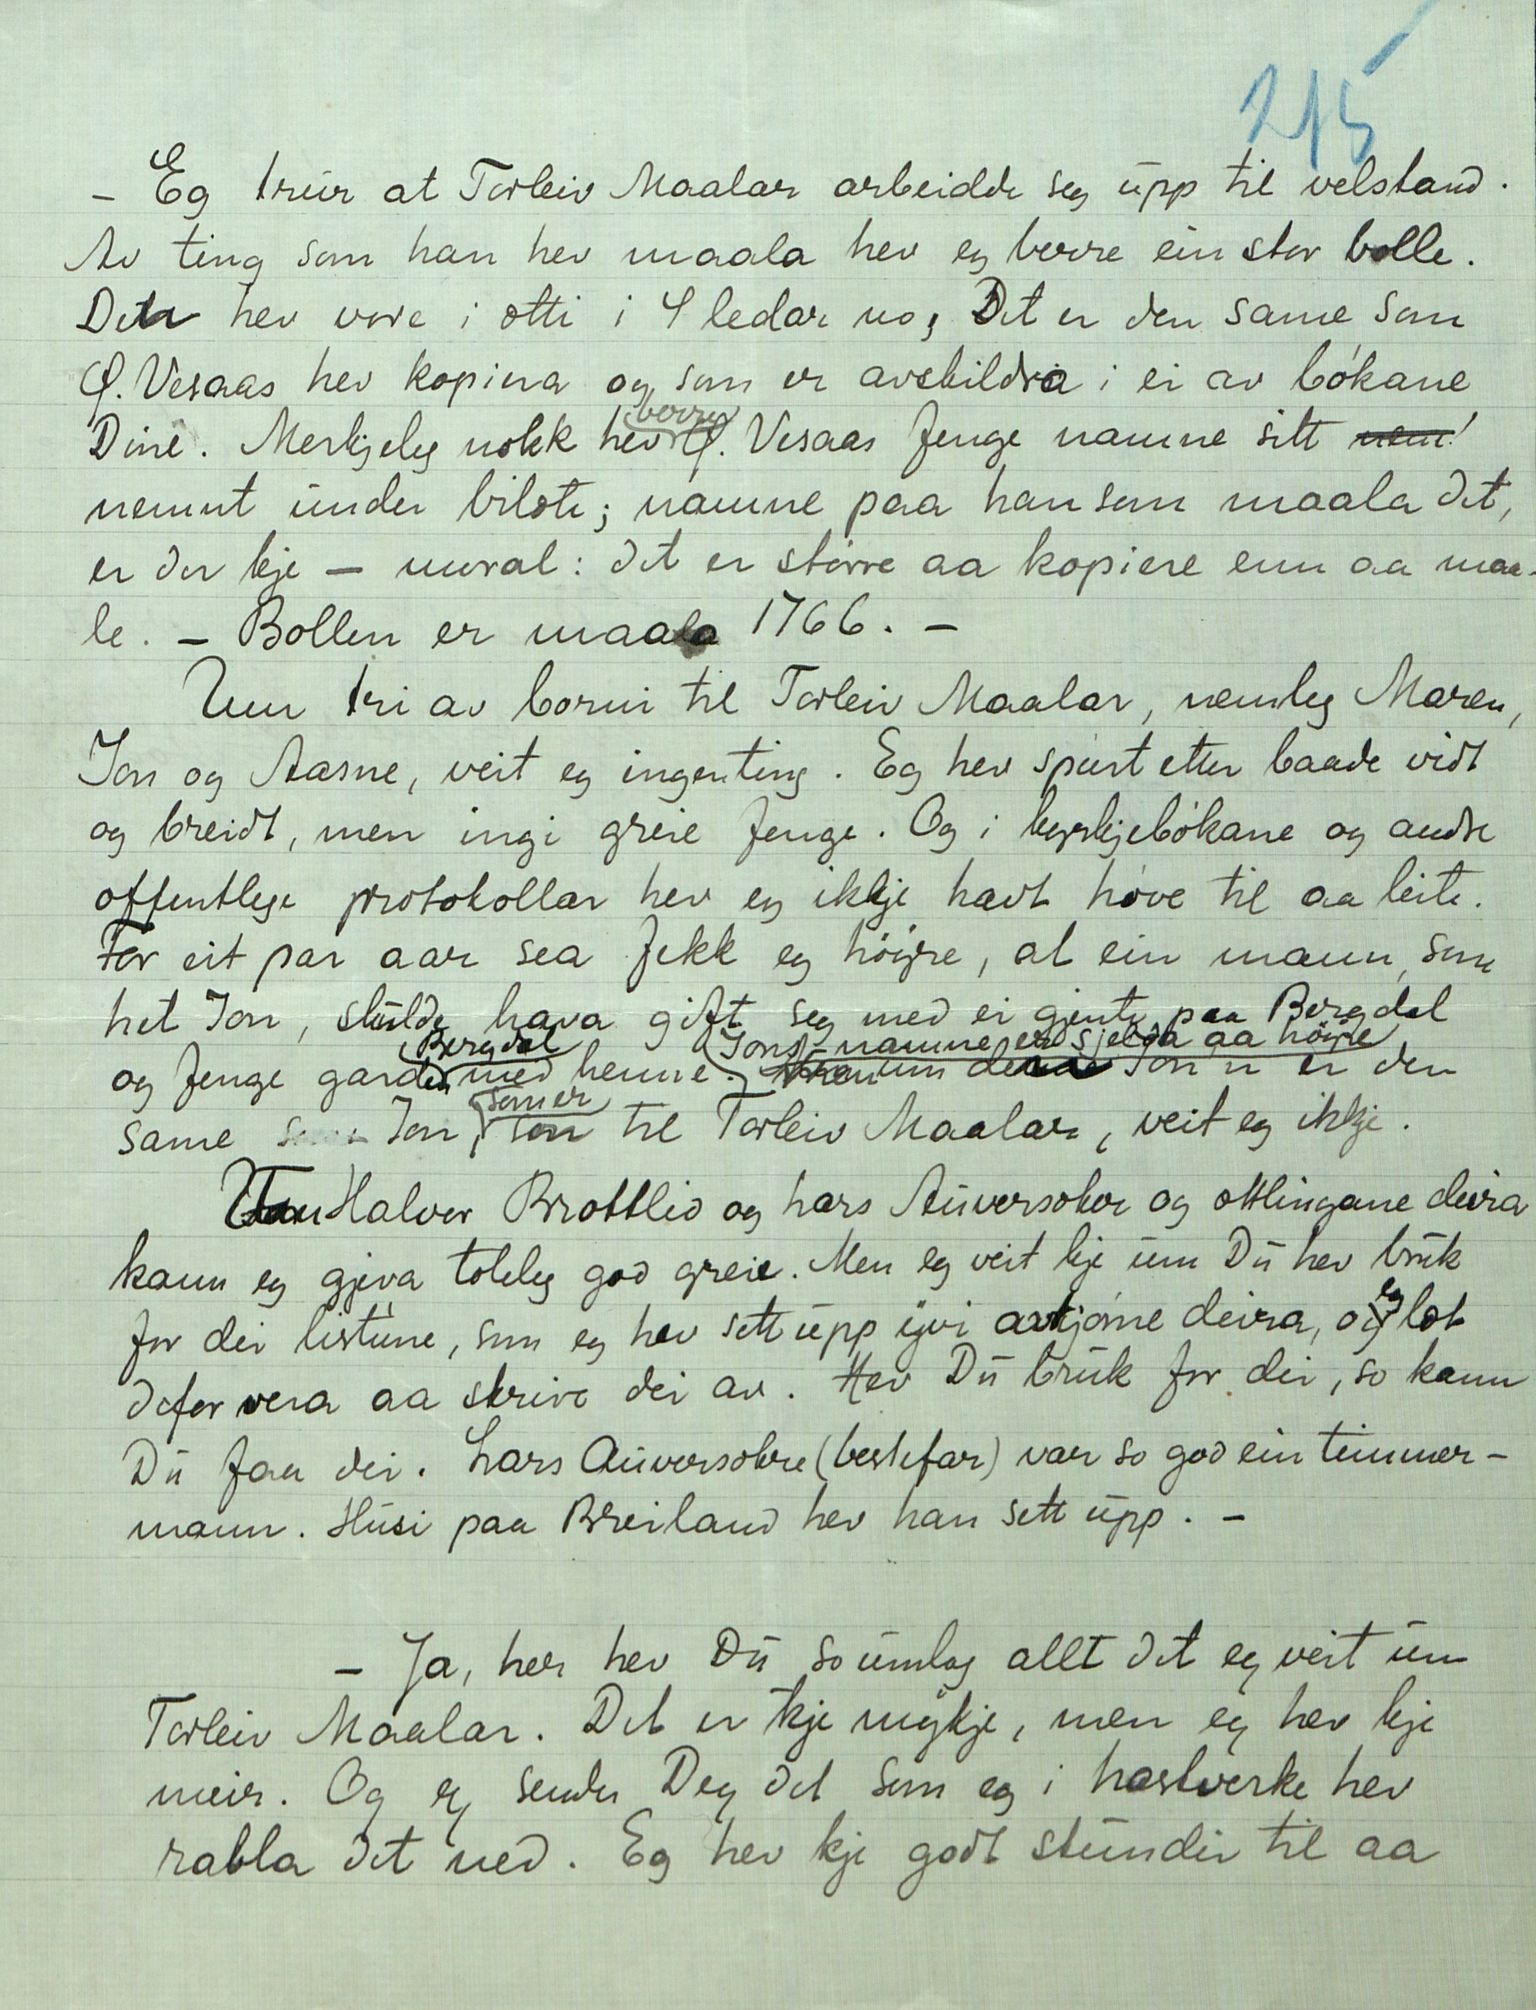 215
- Eg trur at Torleiv Maalar arbeidde seg upp til velstand.
Av ting som han hev maala hev eg berre ein stor bolle.
Den hev vore i ætti i 4 ledar no, Det er den same som
Ø. Vesaas hev kopiera og som er avbilda i ei av bókane
Dine. Merkjeleg nokk hev berre Ø. Vesaas fenge namne sitt
nemnt under bilæte; namne paa han som maala det,
er der kje — moral: det er større aa kopiere enn aa maa-
le. - Bollen er maala 1766. -
Um tri av borni til Torleiv Maalar, nemleg Maren,
Jon og Aasne, veit eg ingenting. Eg hev spurt etter baade vidt
og breidt, men ingi greie fenge. Og i kyrkjebókane og andre
offentlege protokollar hev eg ikkje havt høve til aa leite.
For eit par aar sea fekk eg høyre, at ein mann, som
het Jon, skulde hava gift seg med ei gjente paa Bergdal
Bergdal Jons-namne er sjelda aa høyre
og fenge garden med henne. um denne Jon'n er den
som er
same Jon, son til Torleiv Maalar, veit eg ikkje.
Um Halvor Brottlid og Lars Auversokre og ættlingane deira
kann eg gjeva toleleg god greie. Men eg veit kje um Du hev bruk
for dei listune, som eg hev sett upp yvi avkjøme deira, og eg læt
defor vera aa skrive dei av. Hev Du bruk for dei, so kann
Du faa dei. Lars Auversokre (bestefar) var so god ein timmer-
mann. Husi paa Breiland hev han sett upp. -
- Ja, her hev Du so umlag allt det eg veit um
Torleiv Maalar. Det er kje mykje, men eg hev kje
meir. Og eg sender Deg det som eg i hastverke hev
rabla det ned. Eg hev kje godt stunder til aa